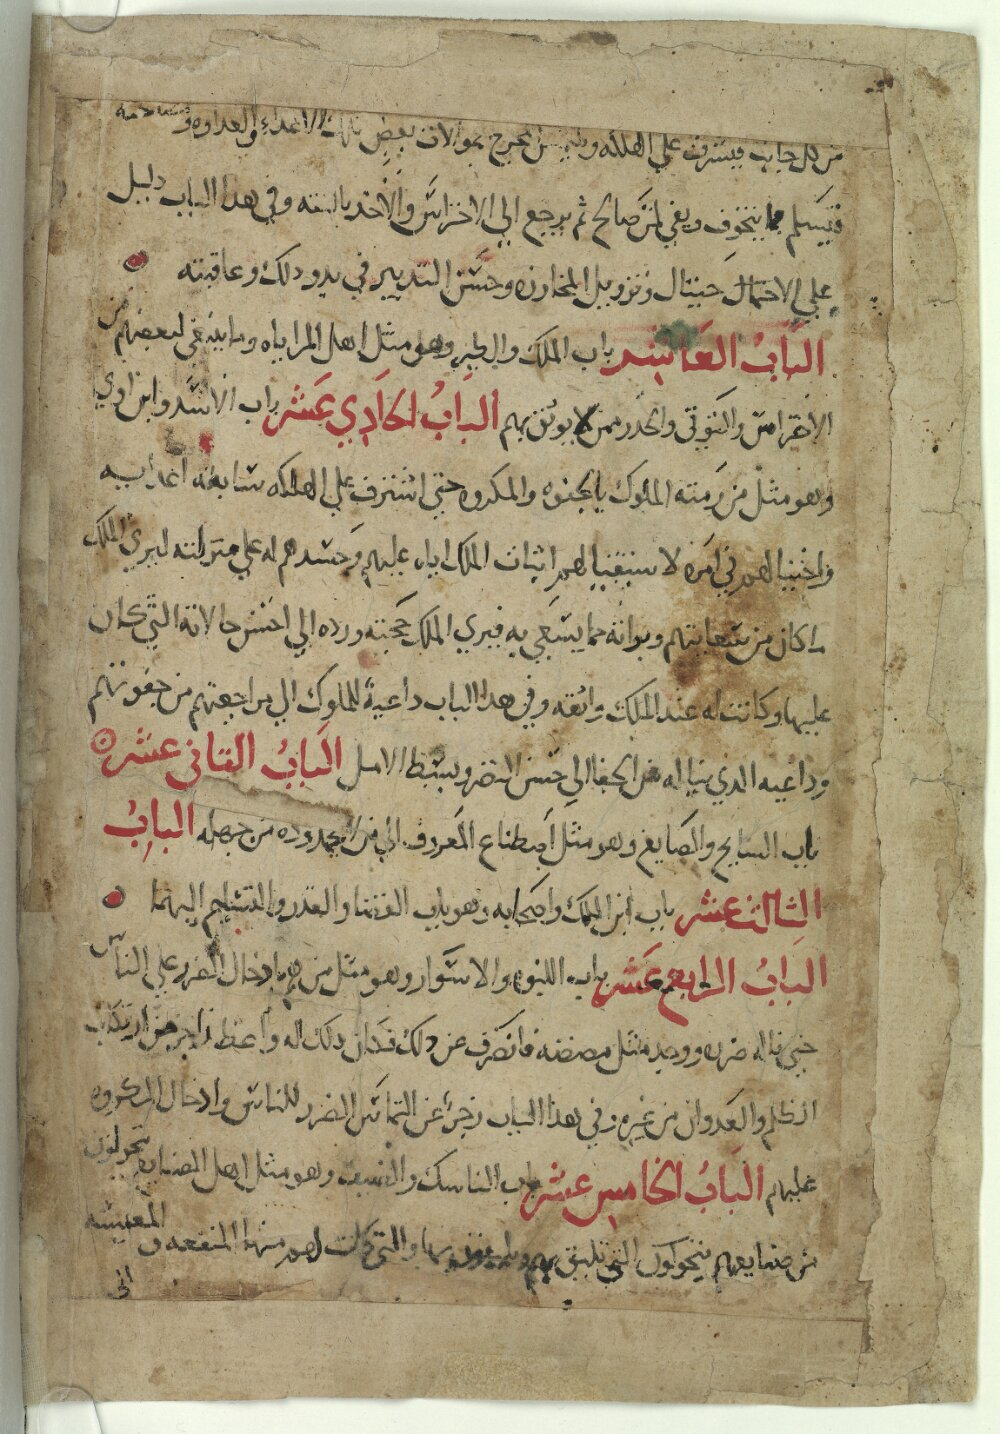 من كل جانب فيشرف علي الهلكه و المخرج بموالات بعض تلك الاعداء والعداوه و
فيسلم مما يتخوف ويفي لمن صالح ثم يرجع الي الاحتراس والاخذ بالثقه وفي هذا الباب دليل
علي الاحتمال حينيال وتزويل المحاربه وحسن التدبير في بدو ذلك وعاقبته
الباب العاشر باب الملك والطير وهو مثل اهل المراياه وما ينبغي لبعضهم من
الاحتراس والتوقي والحذر ممن لا يوثق بهم الباب الحادي عشر باب الاسد وابن اوي
وهو مثل من رمته الملوك بالجفوه والمكروه حتي اشرف علي الهلكه سعايه اعدايه
واختيالهم في امره لا اثبات الملك اياه عليهم وحسدهم له علي منزلته ليري الملك
ما كان من سعايتهم وبراته مما يسعي به فيري الملك حجته ورده الي احسن حالاته التي كان
عليها وكانت له عند الملك واثقه وفي هذا الباب داعية الملوك الي مراجعتهم من جفوتهم
وداعيه الذي يناله من الجفا الي حسن الصبر وبسط الامل الباب الثاني عشر
باب السايح والصايغ وهو مثل اصطناع المعروف الي من من جهله الباب
الثالث عشر باب ابن الملك واصحابه وهو باب القضا والقدر والتسليم اليهما
الباب الرابع عشر باب اللبوه والاسوار وهو مثل من هم بادخال الضر علي الناس
حتي ناله ضره ووجد مثل مضضه فانصرف عن ذلك فكان ذلك له واعظا زاجر من ارتكاب
الظلم والعدوان من غيره وفي هذا الباب زجر عن التماس الضرر للناس وادخال المكروه
عليهم الباب الخامس عشر باب الناسك والضيف وهو مثل اهل الصنايع يتحولون
من صنايعهم يتحركون التي تليق بهم بها والتي كانت لهم منها المنفعه و المعيشه
الي